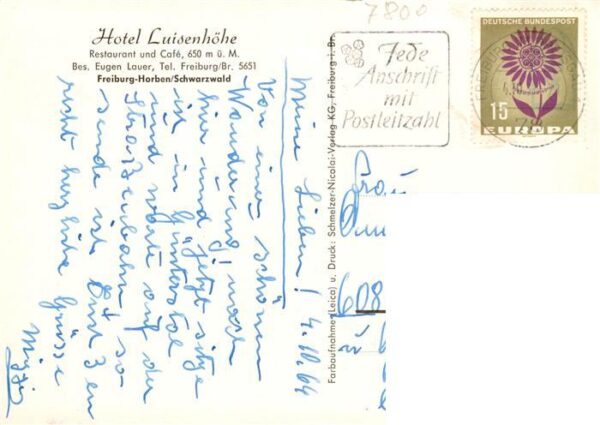 7800
Hotel Luisenhöhe
Restaurant und Café, 650 m ü. M.
Bes. Eugen Lauer, Tel. Freiburg/Br. 5651
Freiburg-Horben/Schwarzwald
Jede
Anschrift
mit
Postleitzahl
DEUTSCHE BUNDESPOST
15
EUROPA
Farbaufnahme (Leica) u. Druck: Schmelzer-Nicolai-Verlag KG, Freiburg i. Br.
4.10.64
Meine Lieben!
Von einer schönen
Wanderung, nach
hier und jetzt sitze
ich in Günterstal
und warte auf der
Straßenbahn! so
sende ich Euch 3 en
recht herzliche Grüsse
Frau
608